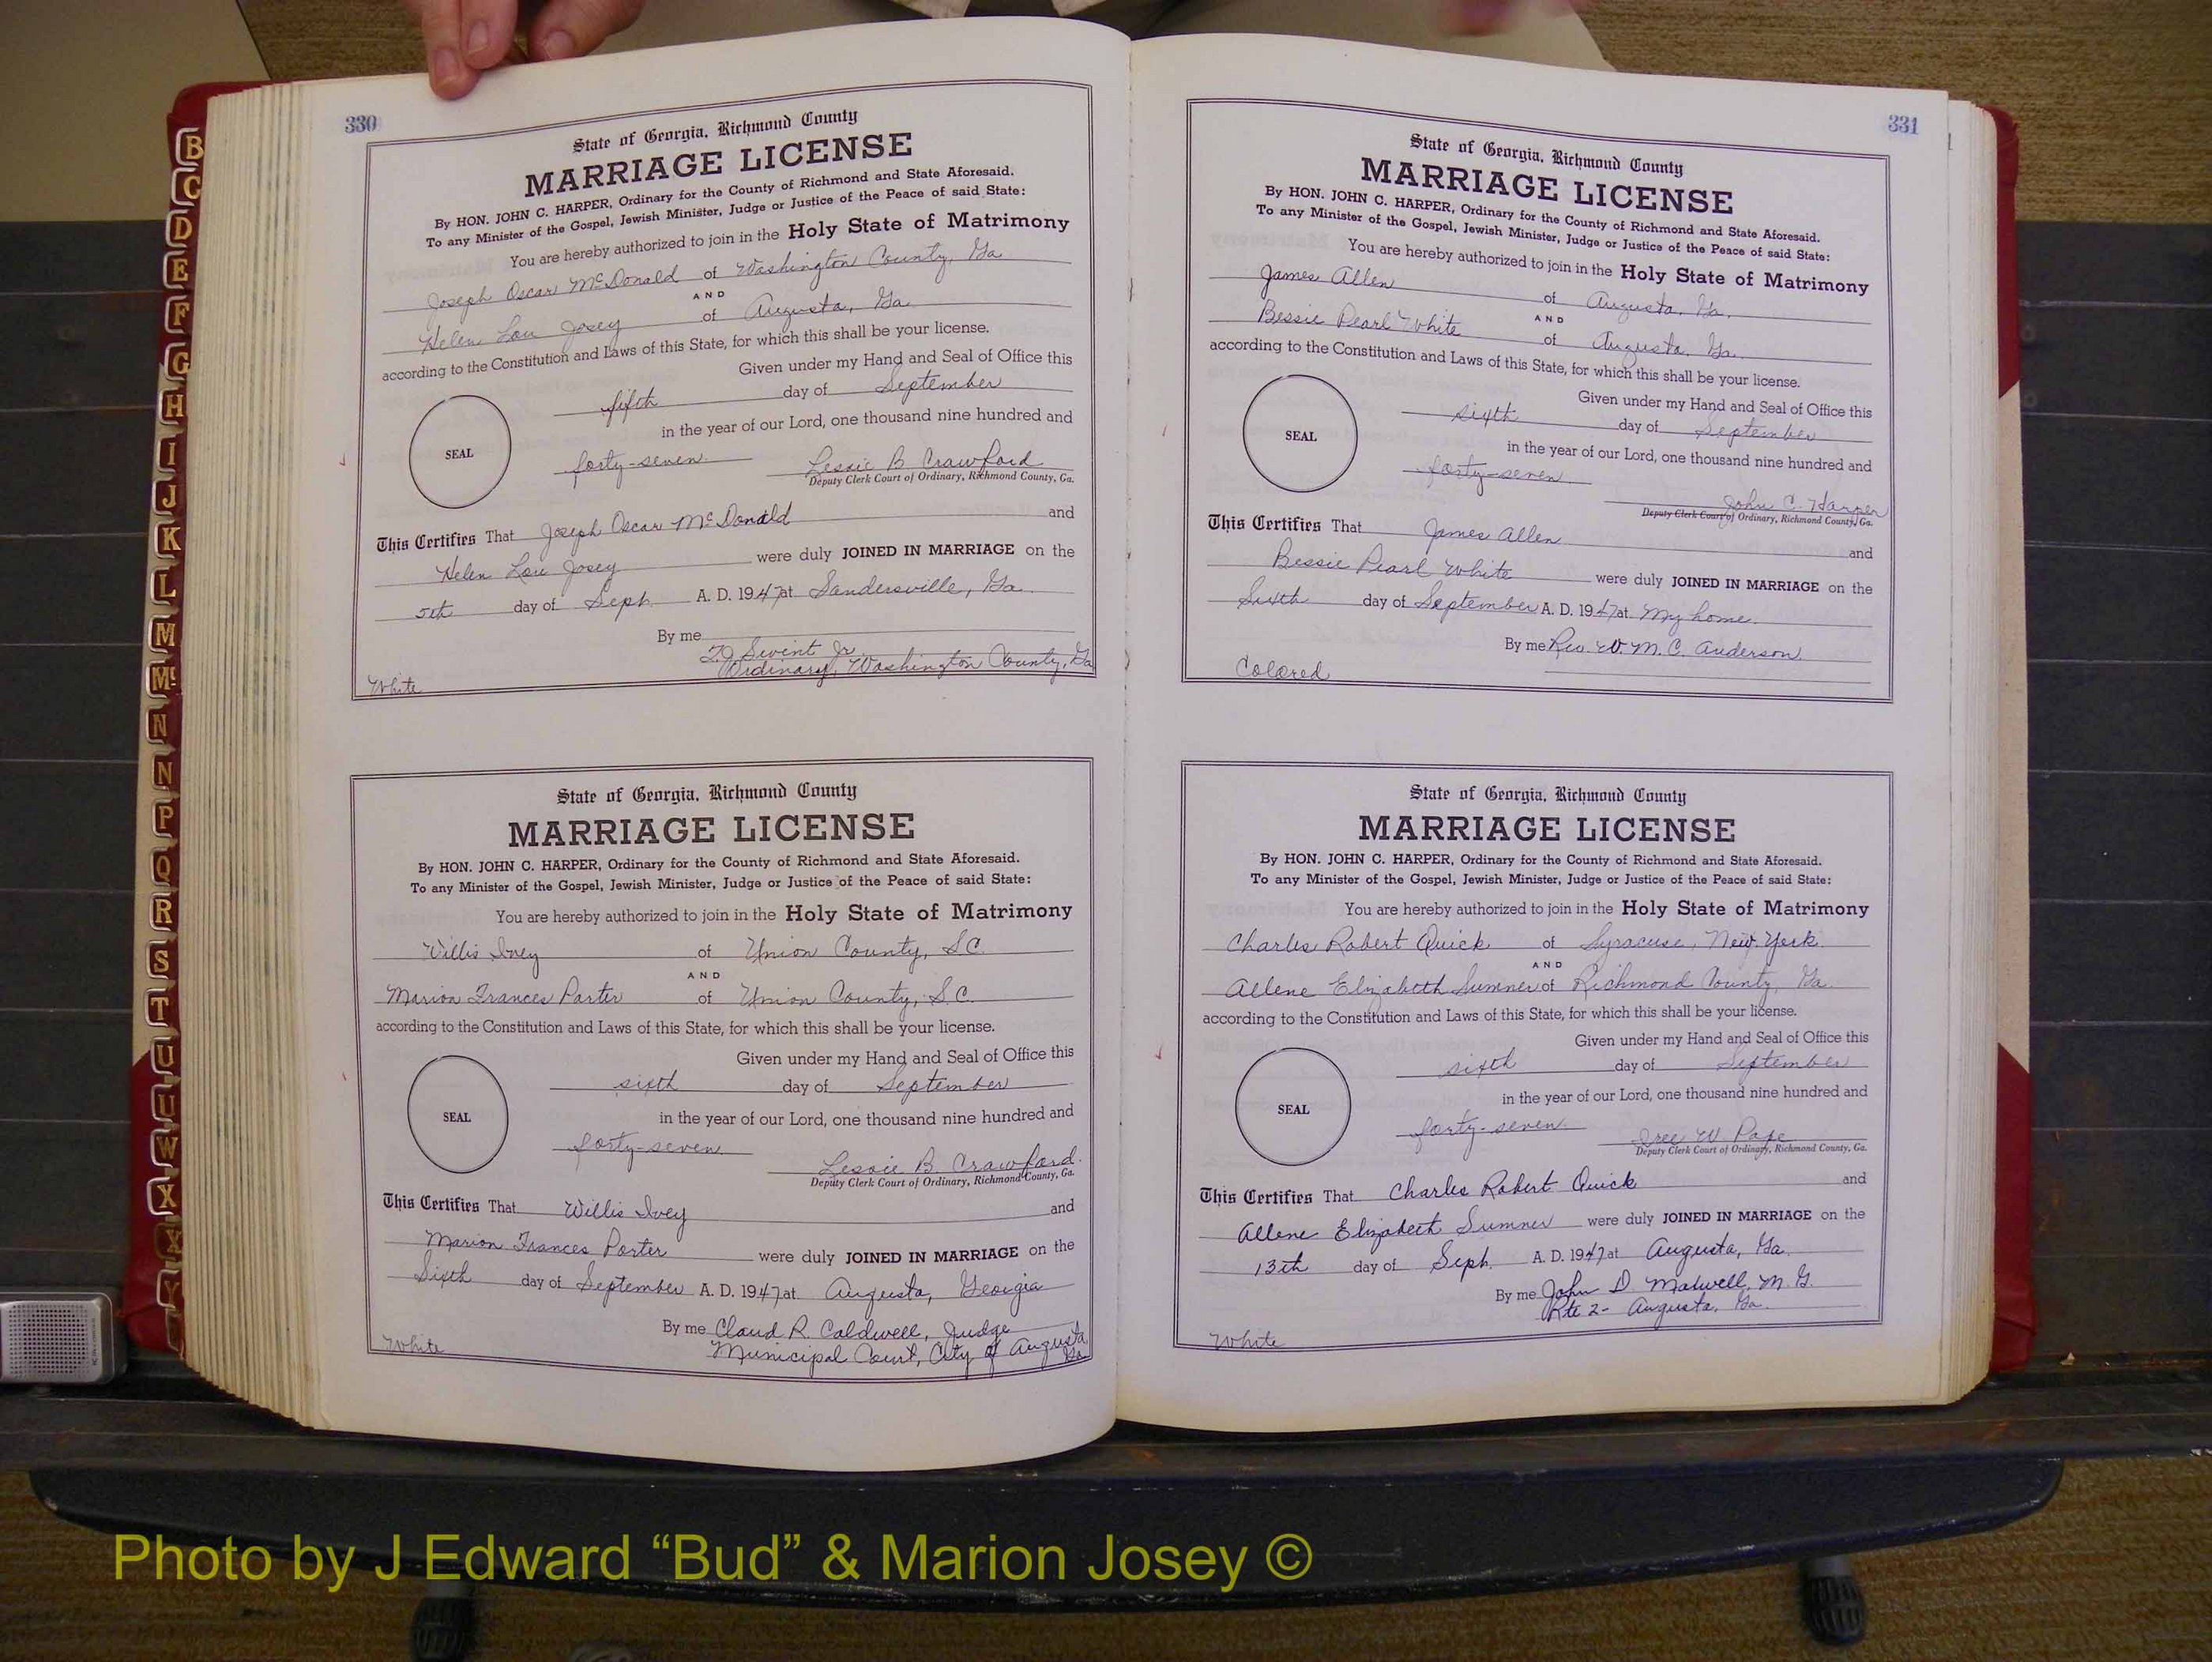 330
State of Georgia, Richmond County
MARRIAGE LICENSE
By HON. JOHN C. HARPER, Ordinary for the County of Richmond and State Aforesaid.
To any Minister of the Gospel, Jewish Minister, Judge or Justice of the Peace of said State:
You are hereby authorized to join in the Holy State of Matrimony
Joseph Oscar McDonald of Washington County, Ga
AND
Helen Lou Josey of Augusta, Ga.
according to the Constitution and Laws of this State, for which this shall be your license.
Given under my Hand and Seal of Office this
fifth day of September
in the year of our Lord, one thousand nine hundred and
SEAL
forty-seven. Lessie B. Crawford
Deputy Clerk Court of Ordinary, Richmond County, Ga.
This Certifies That Joseph Oscar McDonald and
Helen Lou Josey were duly JOINED IN MARRIAGE on the
5th day of Sept. A. D. 1947 at Sandersville, Ga.
By me
Swint Jr.
Ordinary, Washington County, Ga
White
State of Georgia, Richmond County
MARRIAGE LICENSE
By HON. JOHN C. HARPER, Ordinary for the County of Richmond and State Aforesaid.
To any Minister of the Gospel, Jewish Minister, Judge or Justice of the Peace of said State:
You are hereby authorized to join in the Holy State of Matrimony
Willis Ivey of Union County, S.C.
AND
Marion Frances Porter of Union County, S.C.
according to the Constitution and Laws of this State, for which this shall be your license.
Given under my Hand and Seal of Office this
sixth day of September
in the year of our Lord, one thousand nine hundred and
SEAL
forty-seven Lessie B. Crawford.
Deputy Clerk Court of Ordinary, Richmond County, Ga.
This Certifies That Willis Ivey and
Marion Frances Porter were duly JOINED IN MARRIAGE on the
Sixth day of September A. D. 1947 at Augusta, Georgia
By me Claud R. Caldwell, Judge
Municipal Court, City of Augusta,
Ga.
White
331
State of Georgia, Richmond County
MARRIAGE LICENSE
By HON. JOHN C. HARPER, Ordinary for the County of Richmond and State Aforesaid.
To any Minister of the Gospel, Jewish Minister, Judge or Justice of the Peace of said State:
You are hereby authorized to join in the Holy State of Matrimony
James Allen of Augusta, Ga.
AND
Bessie Pearl White of Augusta, Ga.
according to the Constitution and Laws of this State, for which this shall be your license.
Given under my Hand and Seal of Office this
sixth day of September
in the year of our Lord, one thousand nine hundred and
SEAL
forty-seven John C. Harper
Deputy Clerk Court of Ordinary, Richmond County, Ga.
This Certifies That James Allen and
Bessie Pearl White were duly JOINED IN MARRIAGE on the
Sixth day of September A. D. 1947 at My home.
By me Rev. W. M. C. Anderson.
Colored
State of Georgia, Richmond County
MARRIAGE LICENSE
By HON. JOHN C. HARPER, Ordinary for the County of Richmond and State Aforesaid.
To any Minister of the Gospel, Jewish Minister, Judge or Justice of the Peace of said State:
You are hereby authorized to join in the Holy State of Matrimony
Charles Robert Quick of Syracuse, New York
AND
Allene Elizabeth Sumner of Richmond County, Ga.
according to the Constitution and Laws of this State, for which this shall be your license.
Given under my Hand and Seal of Office this
sixth day of September
in the year of our Lord, one thousand nine hundred and
SEAL
forty-seven W. Pope
Deputy Clerk Court of Ordinary, Richmond County, Ga.
This Certifies That Charles Robert Quick and
Allene Elizabeth Sumner were duly JOINED IN MARRIAGE on the
13th day of Sept. A. D. 1947 at Augusta, Ga.
By me John D. M. G.
Rte 2- Augusta, Ga.
White
B
C
D
E
F
G
H
I
J
K
L
M
Mc
N
N
P
Q
R
S
T
U
U
W
X
X
Y
Photo by J Edward “Bud” & Marion Josey ©